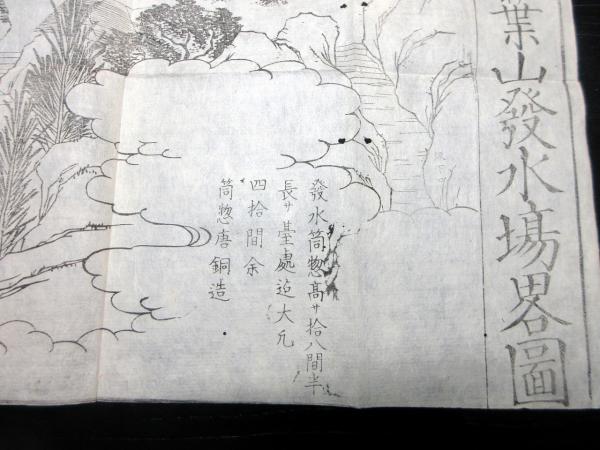 葉山發水場畧圖
發水筒惣高サ拾八間半
長サ臺處迠大凢
四拾間余
筒惣唐銅造